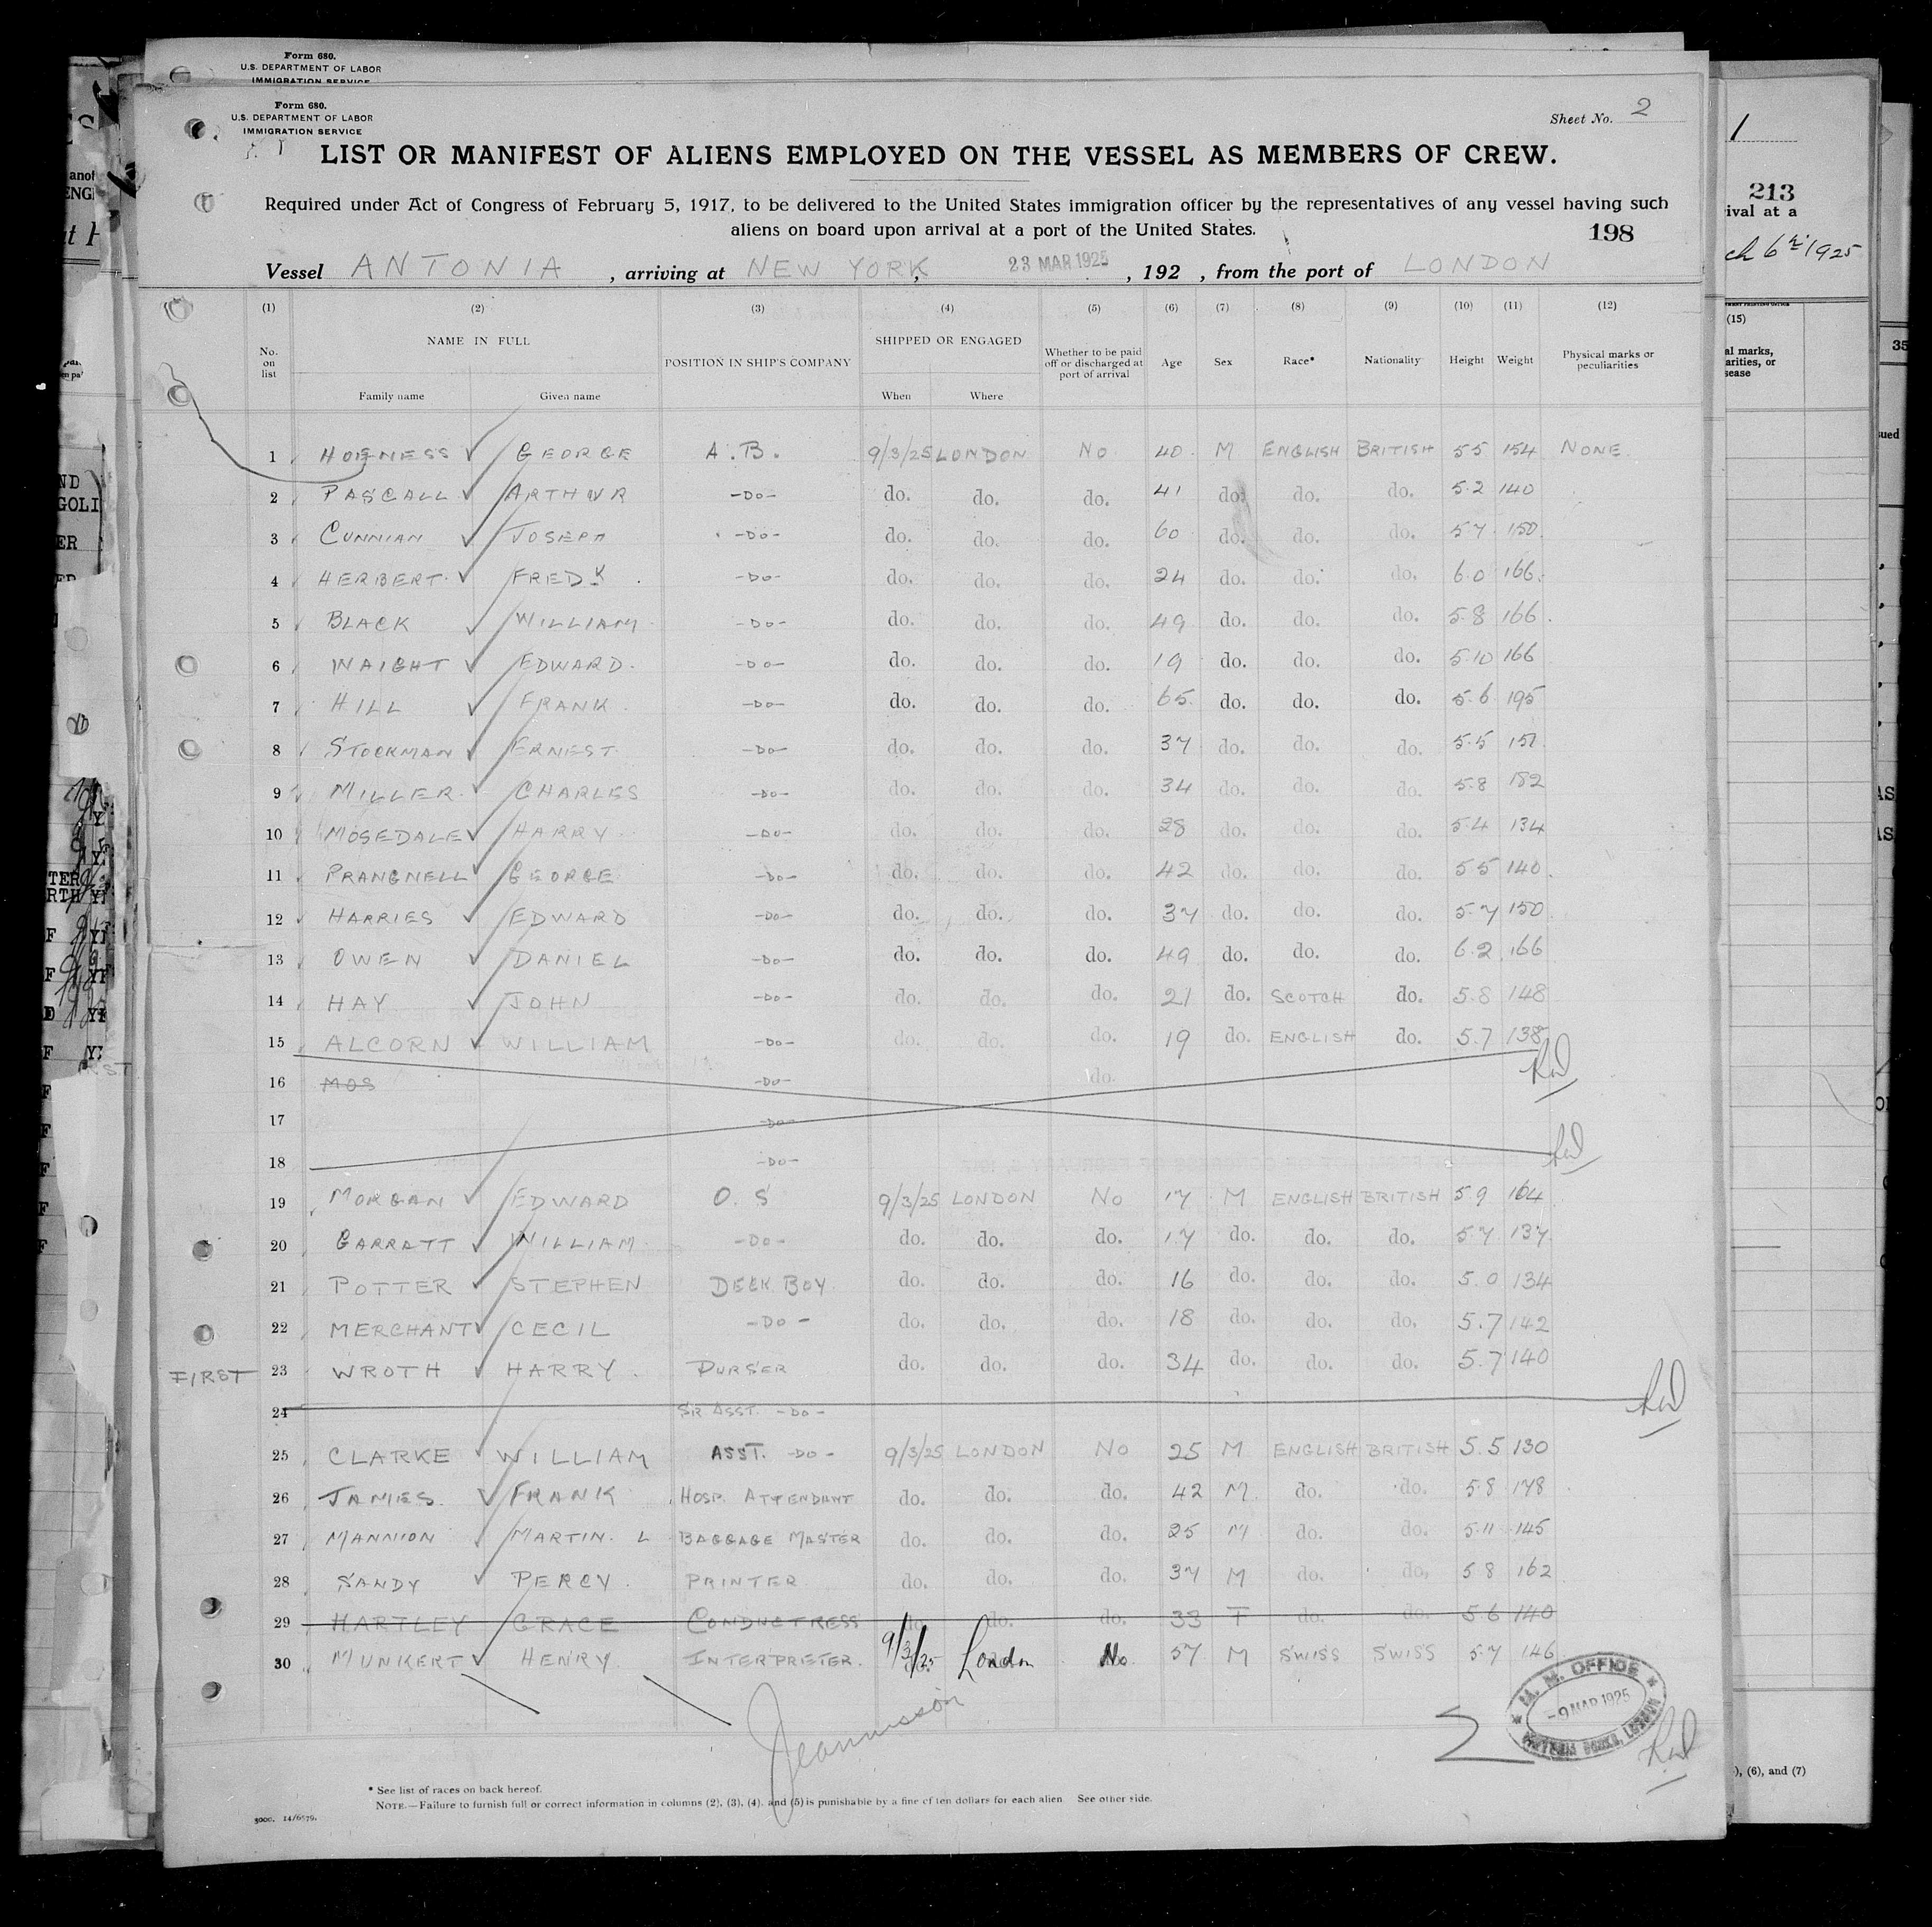 Form 680.
U.S. DEPARTMENT OF LABOR
IMMIGRATION SERVICE
Form 680.
U.S. DEPARTMENT OF LABOR
IMMIGRATION SERVICE
Sheet No. 2
LIST OR MANIFEST OF ALIENS EMPLOYED ON THE VESSEL AS MEMBERS OF CREW.
Required under Act of Congress of February 5, 1917, to be delivered to the United States immigration officer by the representatives of any vessel having such
aliens on board upon arrival at a port of the United States.
198
Vessel ANTONIA, arriving at NEW YORK, 23 MAR 1925, 192 , from the port of LONDON
(1) (2) (3) (4) (5) (6) (7) (8) (9) (10) (11) (12)
No. on list NAME IN FULL Family name Given name POSITION IN SHIP'S COMPANY SHIPPED OR ENGAGED When Where Whether to be paid off or discharged at port of arrival Age Sex Race* Nationality Height Weight Physical marks or peculiarities
1 HOENESS GEORGE A.B. 9/3/25 LONDON NO 40 M ENGLISH BRITISH 5 5 154 NONE
2 PASCALL ARTHUR -DO- do. do. do. 41 do. do. do. 5.2 140
3 CUNNIAN JOSEPH -DO- do. do. do. 60 do. do. do. 5 7 150
4 HERBERT FREDK -DO- do. do. do. 24 do. do. do. 6.0 166
5 BLACK WILLIAM -DO- do. do. do. 49 do. do. do. 5.8 166
6 WAIGHT EDWARD. -DO- do. do. do. 19 do. do. do. 5.10 166
7 HILL FRANK -DO- do. do. do. 65 do. do. do. 5.6 195
8 STOCKMAN ERNEST -DO- do. do. do. 37 do. do. do. 5.5 151
9 MILLER CHARLES -DO- do. do. do. 34 do. do. do. 5.8 182
10 MOSEDALE HARRY -DO- do. do. do. 28 do. do. do. 5.4 134
11 PRANGNELL GEORGE -DO- do. do. do. 42 do. do. do. 5 5 140
12 HARRIES EDWARD -DO- do. do. do. 37 do. do. do. 5.7 150
13 OWEN DANIEL -DO- do. do. do. 49 do. do. do. 6.2 166
14 HAY JOHN -DO- do. do. do. 21 do. SCOTCH do. 5.8 148
15 ALCORN WILLIAM -DO- do. do. do. 19 do. ENGLISH do. 5.7 138
16 MOS -DO- do.
17 -DO-
18 -DO-
19 MORGAN EDWARD O. S 9/3/25 LONDON NO 17 M ENGLISH BRITISH 5 9 164
20 GARRATT WILLIAM -DO- do. do. do. 17 do. do. do. 5 7 137
21 POTTER STEPHEN DECK BOY do. do. do. 16 do. do. do. 5.0 134
22 MERCHANT CECIL -DO- do. do. do. 18 do. do. do. 5.7 142
FIRST 23 WROTH HARRY. PURSER do. do. do. 34 do. do. do. 5.7 140
24 SR ASST. -DO-
25 CLARKE WILLIAM ASST. -DO- 9/3/25 LONDON NO 25 M ENGLISH BRITISH 5.5 130
26 JAMES. FRANK HOSP. ATTENDANT do. do. do. 42 M. do. do. 5 8 178
27 MANNION MARTIN. L BAGGAGE MASTER do. do. do. 25 M do. do. 5.11 145
28 SANDY PERCY. PRINTER do. do. do. 37 M do. do. 5 8 162
29 HARTLEY GRACE CONDUCTRESS do. do. do. 33 F do. do. 5 6 140
30 MUNKERT HENRY INTERPRETER. 9/3/25 London No 57 M SWISS SWISS 5.7 146
M. M. OFFICE
-9 MAR 1925
* See list of races on back hereof.
NOTE.—Failure to furnish full or correct information in columns (2), (3), (4), and (5) is punishable by a fine of ten dollars for each alien. See other side.
1
213
ival at a
ch 6th 1925
(15)
al marks,
arities, or
sease
), (6), and (7)